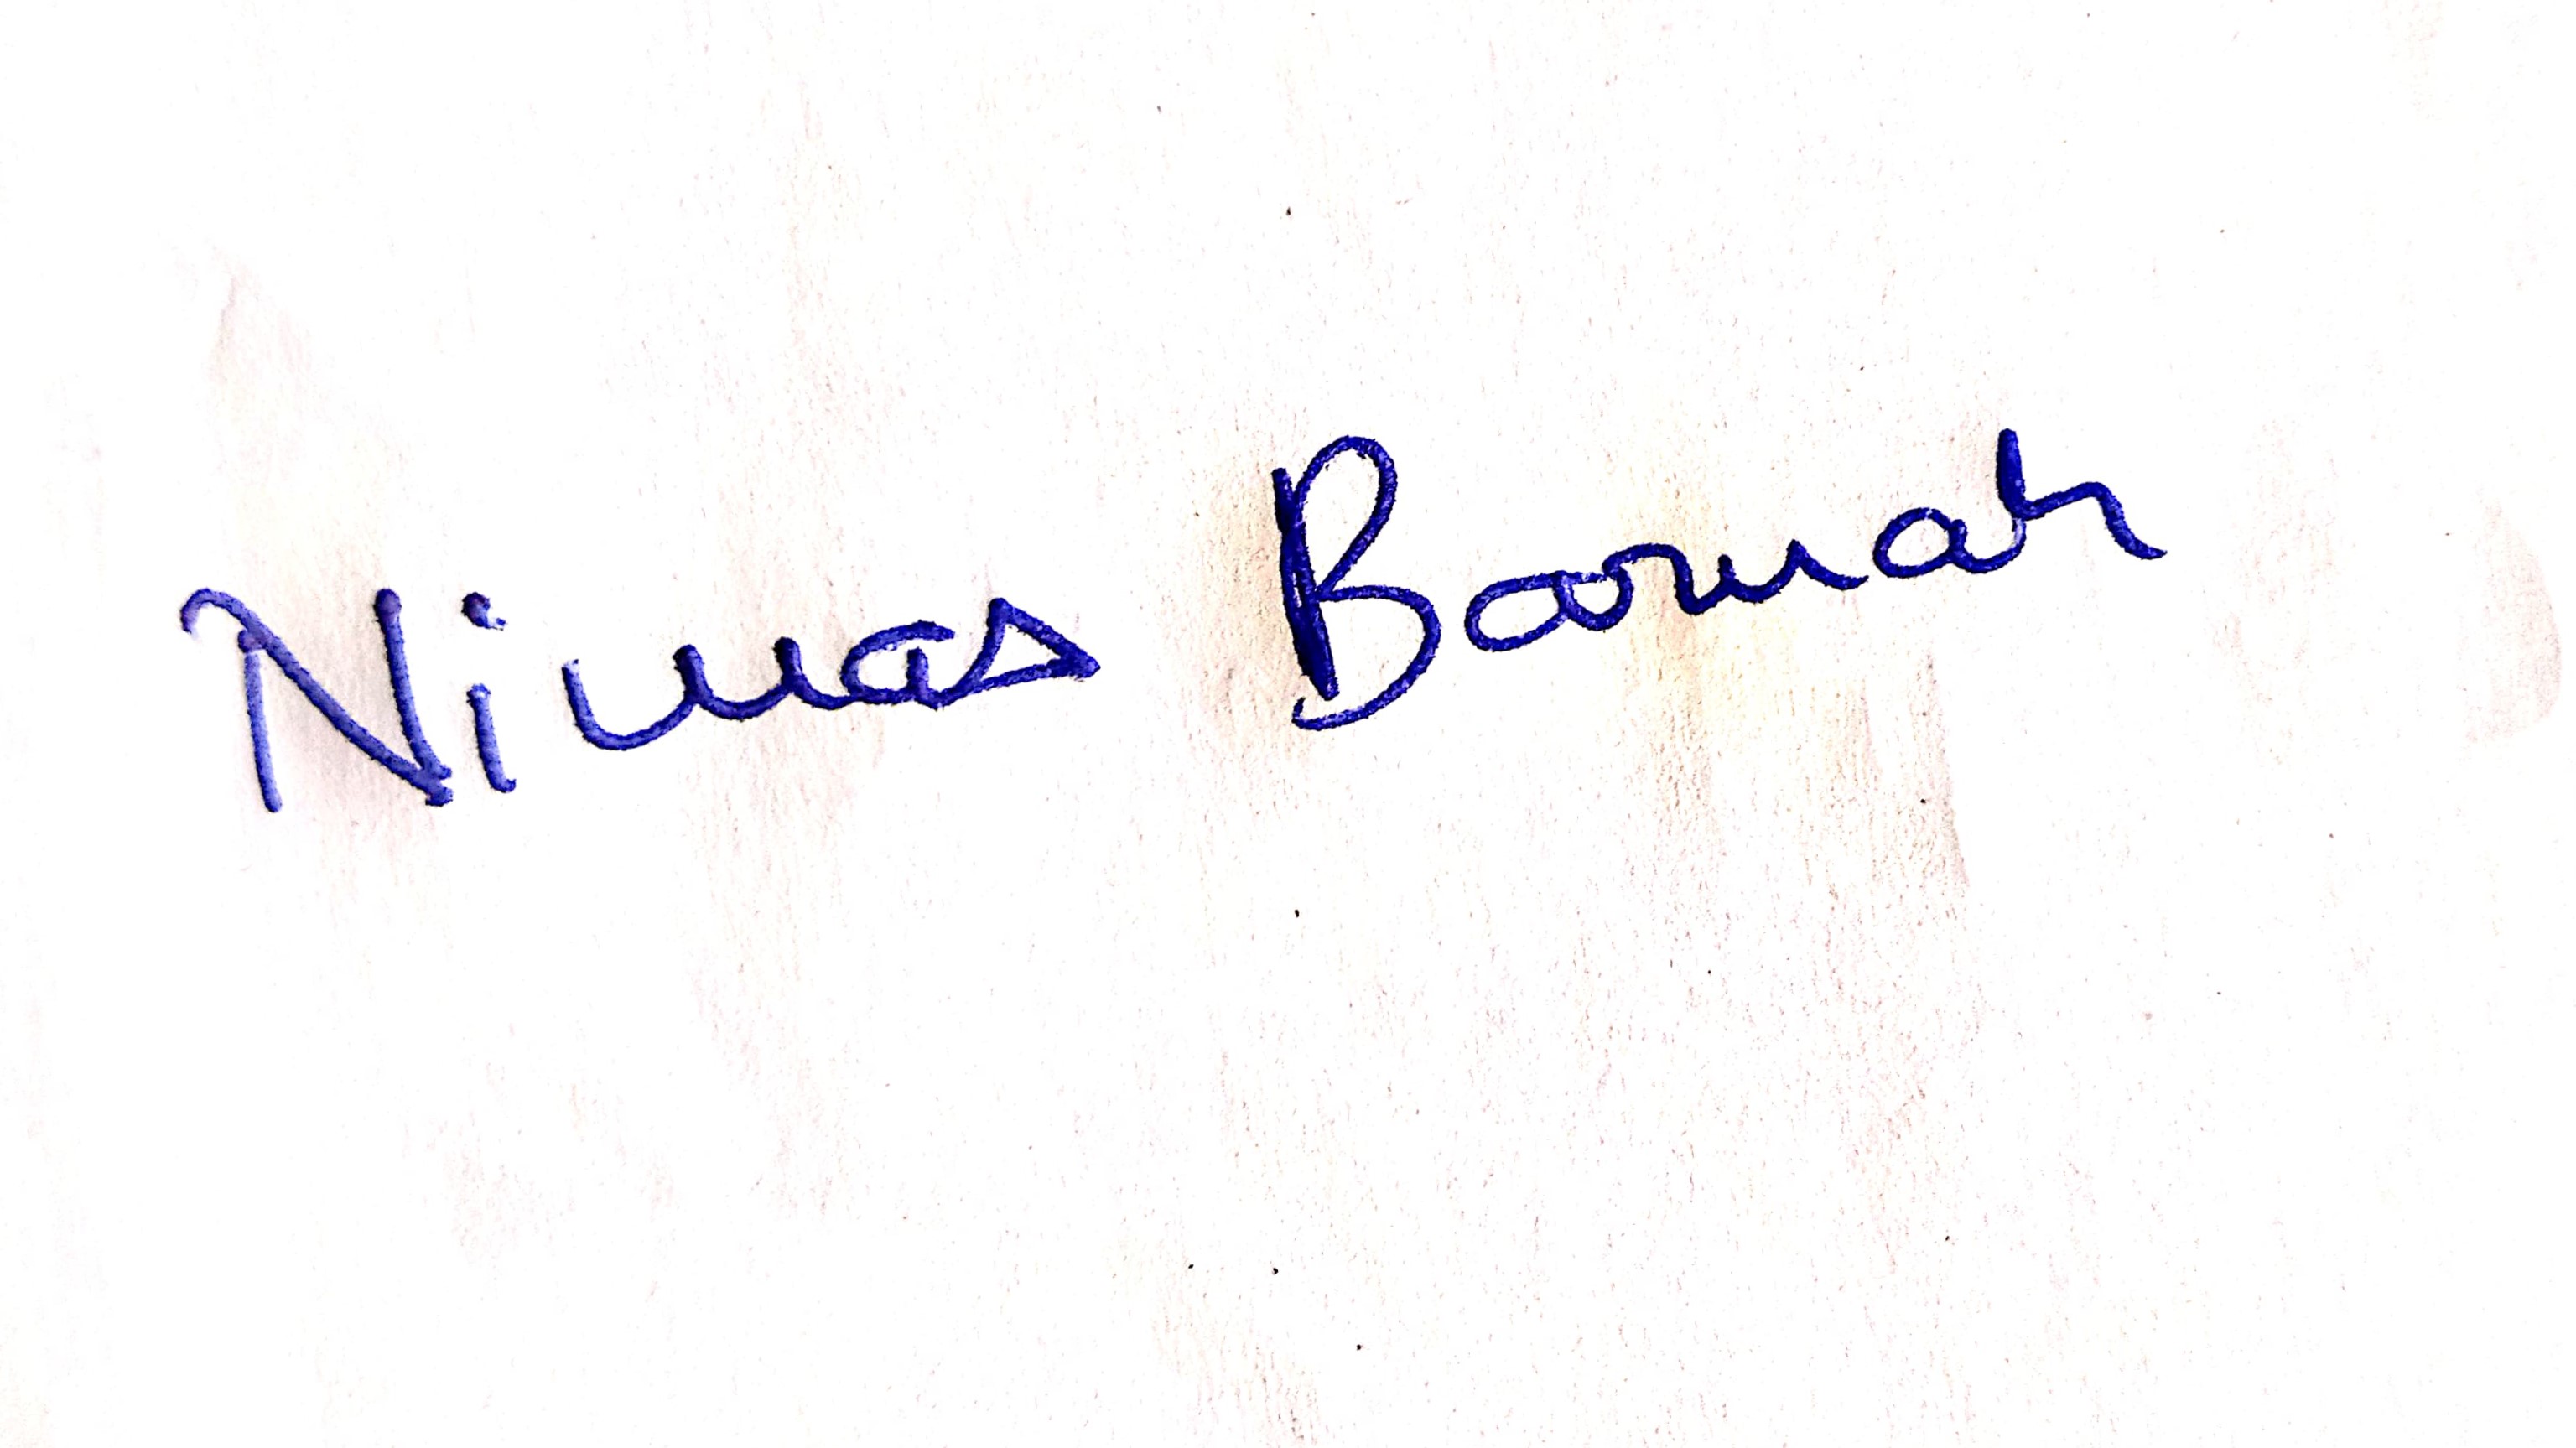 Nimas Boruah